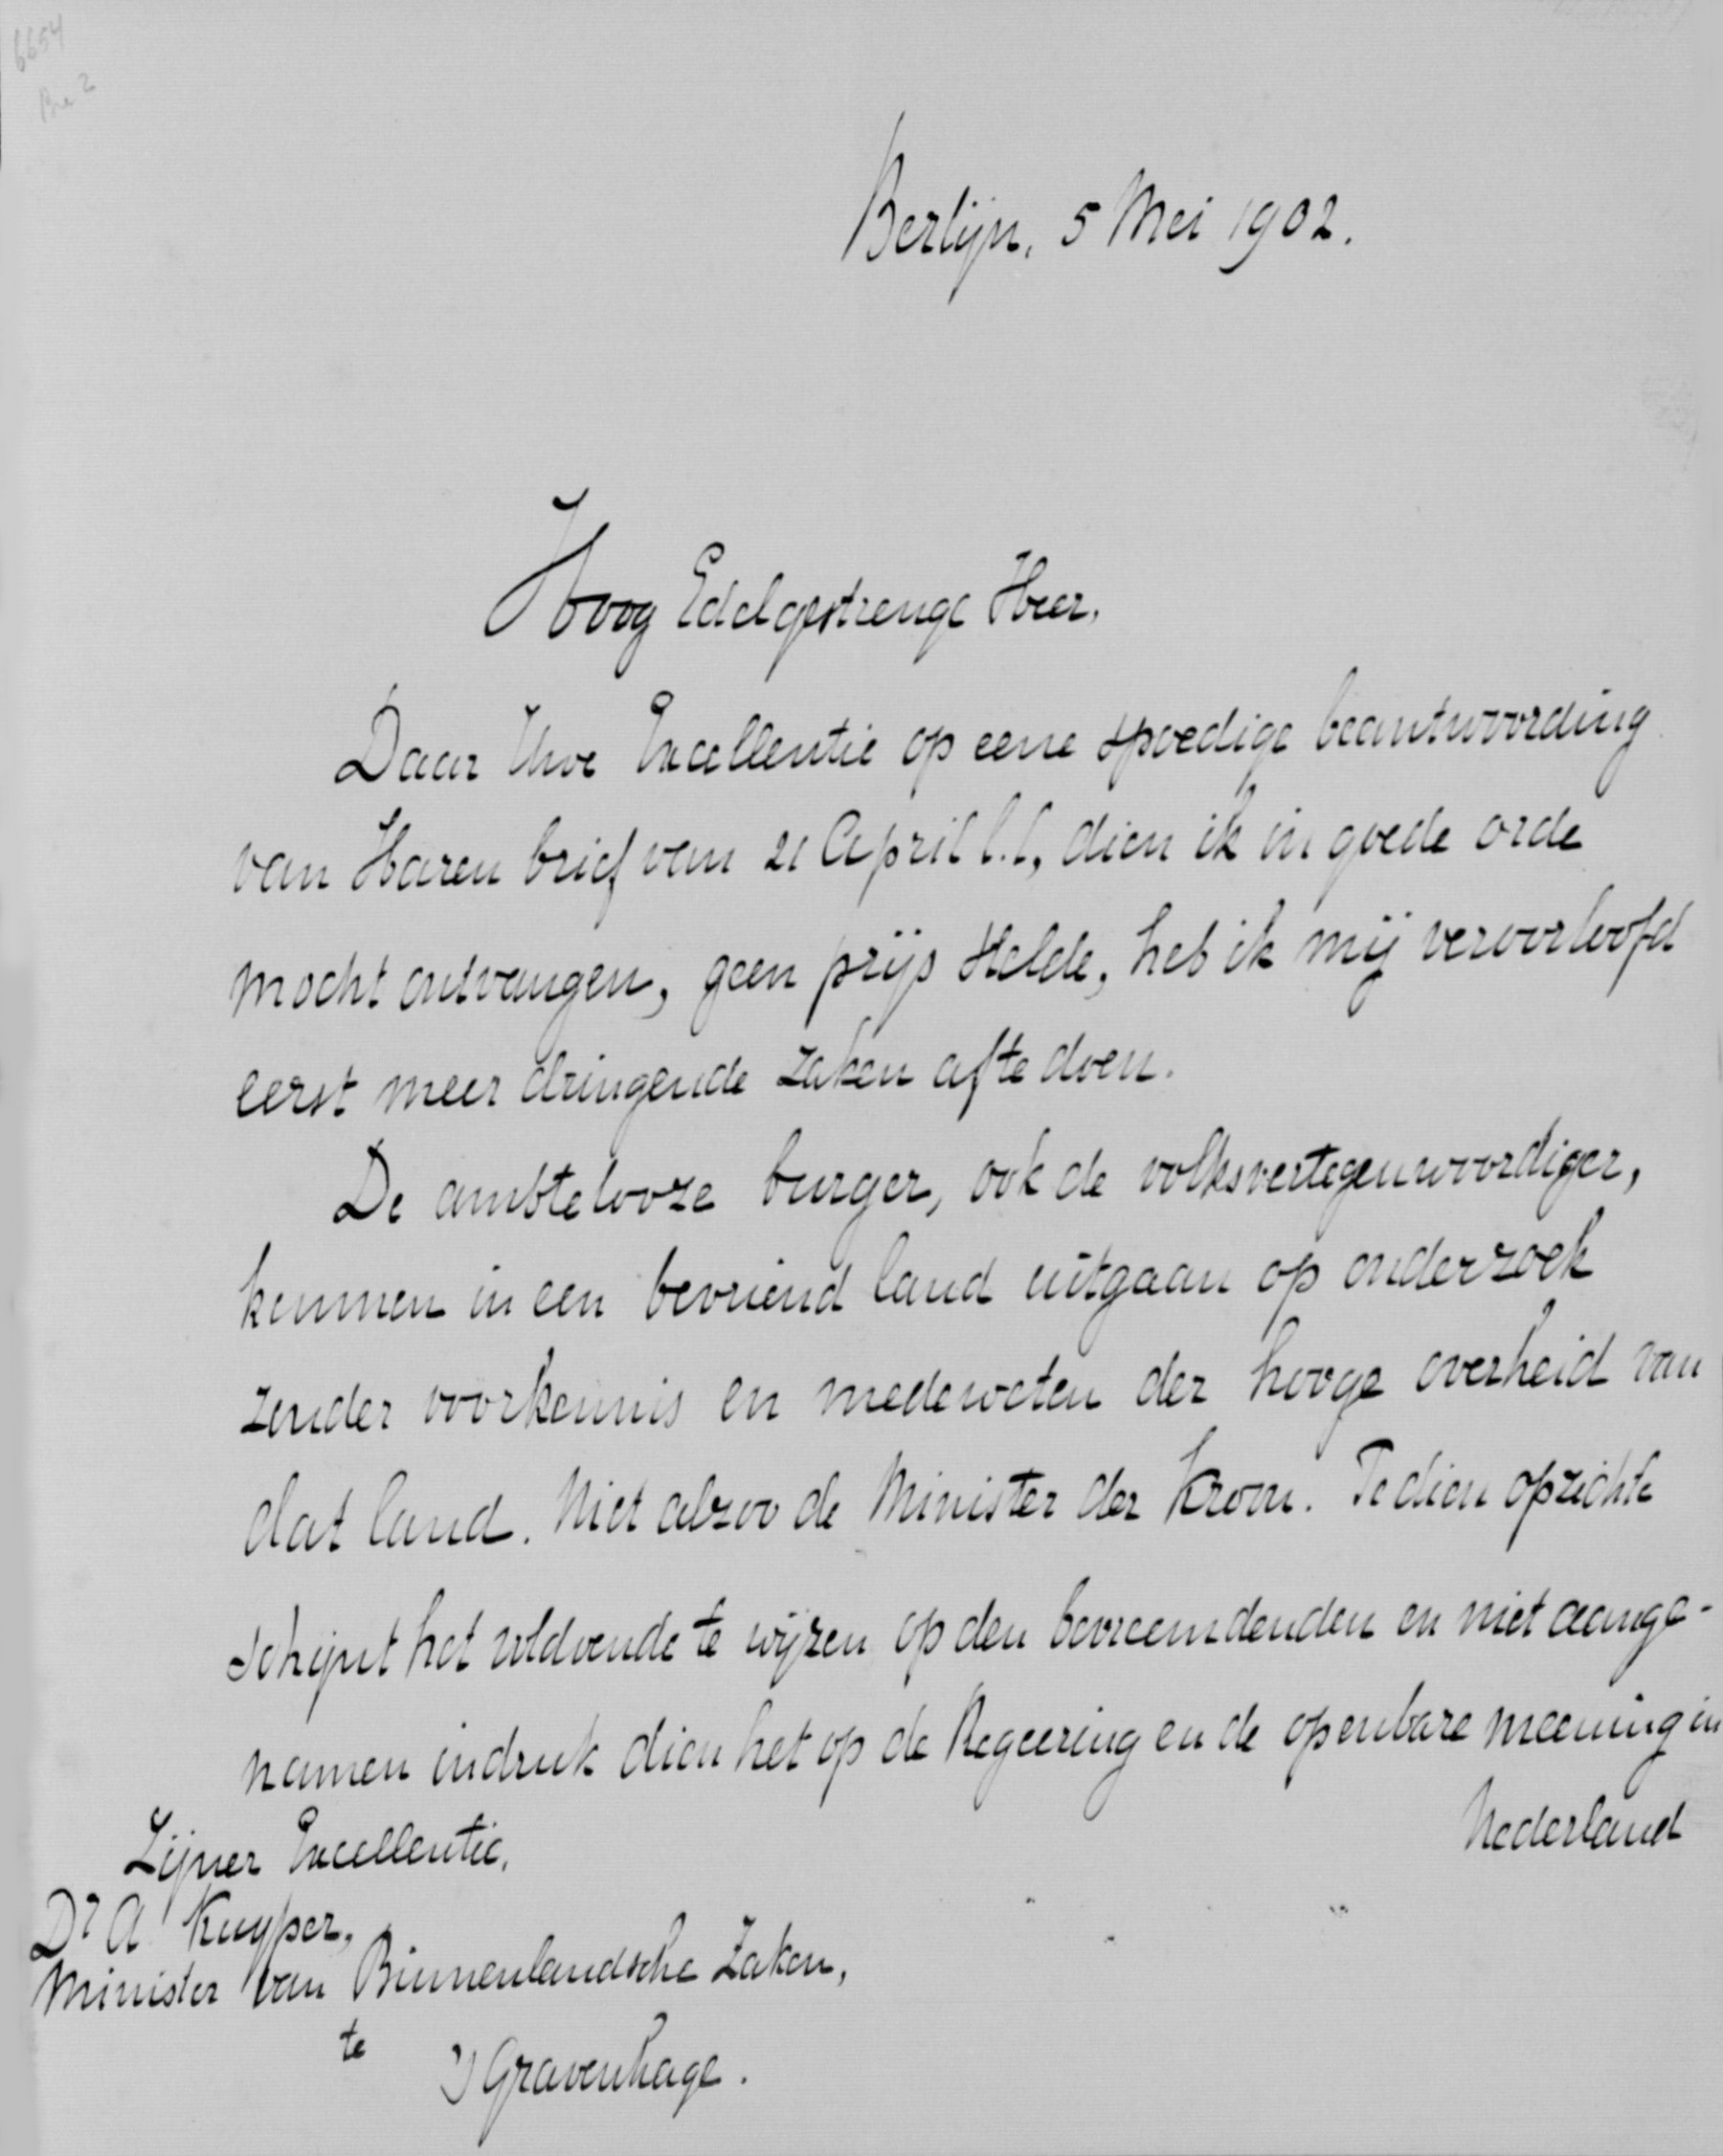 6654
Berlijn, 5 Mei 1902.
Hoog Edelgestrenge Heer,
Daar Uwe Excellentie op eene spoedige beantwoording
van Haren brief van 21 April l.l., dien ik in goede orde
mocht ontvangen, geen prijs stelde, heb ik mij veroorloofd
eerst meer dringende zaken af te doen.
De ambtelooze burger, ook de volksvertegenwoordiger,
kunnen in een bevriend land uitgaan op onderzoek
zonder voorkennis en medeweten der hooge overheid van
dat land. Niet alzoo de Minister der Kroon. Te dien opzichte
schijnt het voldoende te wijzen op den bevreemdenden en niet aange-
namen indruk dien het op de Regeering en de openbare meening in
Nederland
Zijner Excellentie,
Dr A. Kuyper,
Minister van Binnenlandsche Zaken,
te
's Gravenhage.